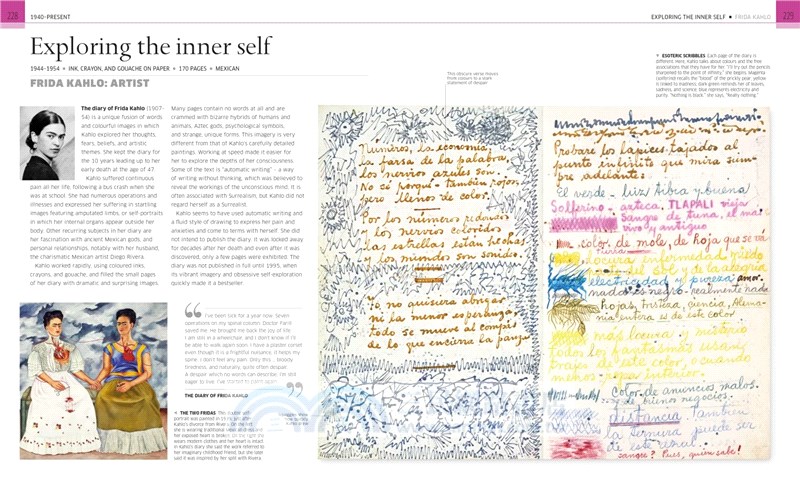 228
1940-PRESENT
EXPLORING THE INNER SELF • FRIDA KAHLO
229
Exploring the inner self
1944–1954 • INK, CRAYON, AND GOUACHE ON PAPER • 170 PAGES • MEXICAN
FRIDA KAHLO: ARTIST
The diary of Frida Kahlo (1907–
54) is a unique fusion of words
and colourful images in which
Kahlo explored her thoughts,
fears, beliefs, and artistic
themes. She kept the diary for
the 10 years leading up to her
early death at the age of 47.
Kahlo suffered continuous
pain all her life, following a bus crash when she
was at school. She had numerous operations and
illnesses and expressed her suffering in startling
images featuring amputated limbs, or self-portraits
in which her internal organs appear outside her
body. Other recurring subjects in her diary are
her fascination with ancient Mexican gods, and
personal relationships, notably with her husband,
the charismatic Mexican artist Diego Rivera.
Kahlo worked rapidly, using coloured inks,
crayons, and gouache, and filled the small pages
of her diary with dramatic and surprising images.
Many pages contain no words at all and are
crammed with bizarre hybrids of humans and
animals, Aztec gods, psychological symbols,
and strange, unique forms. This imagery is very
different from that of Kahlo's carefully detailed
paintings. Working at speed made it easier for
her to explore the depths of her consciousness.
Some of the text is "automatic writing" – a way
of writing without thinking, which was believed to
reveal the workings of the unconscious mind. It is
often associated with Surrealism, but Kahlo did not
regard herself as a Surrealist.
Kahlo seems to have used automatic writing and
a fluid style of drawing to express her pain and
anxieties and come to terms with herself. She did
not intend to publish the diary. It was locked away
for decades after her death and even after it was
discovered, only a few pages were exhibited. The
diary was not published in full until 1995, when
its vibrant imagery and obsessive self-exploration
quickly made it a bestseller.
“
I've been sick for a year now. Seven
operations on my spinal column. Doctor Farill
saved me. He brought me back the joy of life.
I am still in a wheelchair, and I don't know if I'll
be able to walk again soon. I have a plaster corset
even though it is a frightful nuisance, it helps my
spine. I don't feel any pain. Only this... bloody
tiredness, and naturally, quite often despair.
A despair which no words can describe. I'm still
eager to live. I've started to paint again.
”
THE DIARY OF FRIDA KAHLO
◄ THE TWO FRIDAS
This obscure verse moves
from colours to a stark
statement of despair
ESOTERIC SCRIBBLES Each page of the diary is
different. Here, Kahlo talks about colours and the free
associations that they have for her. "I'll try out the pencils
sharpened to the point of infinity," she begins. Magenta
Números, la economía,
la farsa de la palabra,
los nervios azules son.
No sé porqué - también rojos,
pero llenos de color.
Por los números redondos
y los nervios coloridos
las estrellas están hechas
y los mundos son sonido.
Yo no quisiera abrigar
ni la menor esperanza,
todo se mueve al compás
de lo que encierra la panza
Probaré los lápices tajados al
punto infinito que mira siem-
pre adelante:
El verde - luz tibia y buena
Solferino - azteca. TLAPALI vieja
sangre de tuna, el más
vivo y antiguo
color de mole, de hoja que se va
tierra
locura enfermedad miedo
parte del sol y de la alegría
electricidad y pureza amor.
nada es negro - realmente nada
hojas, tristeza, ciencia, Alema-
nia entera es de este color
más locura y misterio
todos los fantasmas usan
trajes de este color, o cuando
menos ropa interior.
Color de anuncios malos
y de buenos negocios.
Distancia También
la ternura puede ser
de este azul.
sangre? Pues, quién sabe!